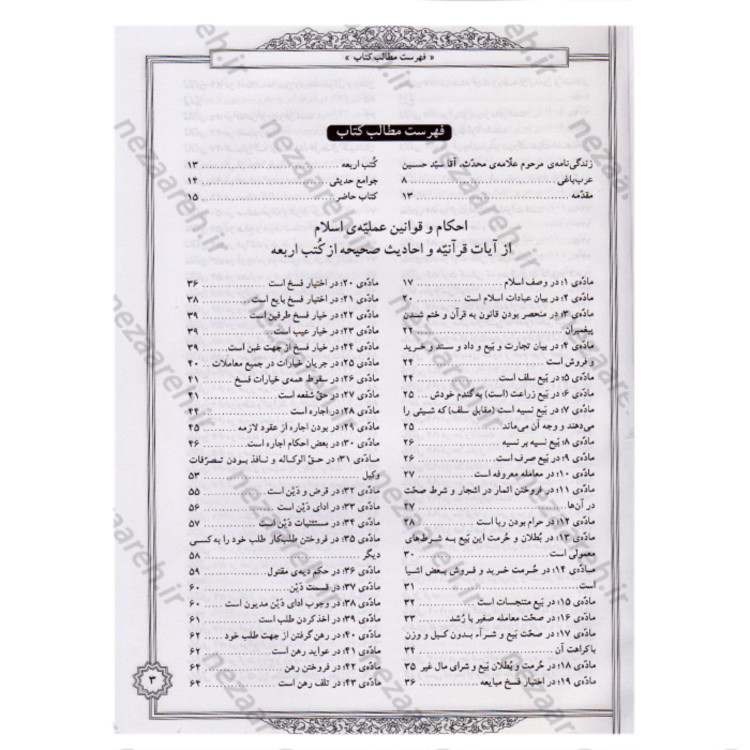 « فهرست مطالب کتاب »
فهرست مطالب کتاب
زندگی‌نامه‌ی مرحوم علّامه‌ی محدّث، آقا سیّد حسین
عرب‌باغی ۸
مقدّمه ۱۳
کُتب اربعه ۱۳
جوامع حدیثی ۱۴
کتاب حاضر ۱۵
احکام و قوانین عملیّه‌ی اسلام
از آیات قرآنیّه و احادیث صحیحه از کُتب اربعه
مادّه‌ی ۱: در وصف اسلام ۱۷
مادّه‌ی ۲: در بیان عبادات اسلام است ۲۰
مادّه‌ی ۳: در منحصر بودن قانون به قرآن و ختم شدن
پیغمبران ۲۲
مادّه‌ی ۴: در بیان تجارت و بَیع و داد و ستد و خرید
و فروش است ۲۴
مادّه‌ی ۵: در بَیع سلف است ۲۴
مادّه‌ی ۶: در بَیع زراعت (است) به گندم خودش ۲۵
مادّه‌ی ۷: در بَیع نسیه است (مقابل سلف) که شیئی را
می‌دهند و وجه آن می‌ماند ۲۵
مادّه‌ی ۸: بَیع نسیه بر نسیه ۲۶
مادّه‌ی ۹: در بَیع صرف است ۲۶
مادّه‌ی ۱۰: در معامله معروفه است ۲۷
مادّه‌ی ۱۱: در فروختن اثمار در اشجار و شرط صحّت
در آن‌ها ۲۷
مادّه‌ی ۱۲: در حرام بودن ربا است ۲۸
مادّه‌ی ۱۳: در بُطلان و حُرمت این بَیع به شرط‌های
معمولی است ۳۰
مادّه‌ی ۱۴: در حُرمت خرید و فروش بعض اشیا
است ۳۱
مادّه‌ی ۱۵: در بَیع متنجسات است ۳۲
مادّه‌ی ۱۶: در صحّت معامله صغیر با رُشد ۳۳
مادّه‌ی ۱۷: در صحّت بَیع و شراء بدون کیل و وزن
باکراهت آن ۳۴
مادّه‌ی ۱۸: در حُرمت و بُطلان بَیع و شرای مال غیر ۳۵
مادّه‌ی ۱۹: در اختیار فسخ مبایعه ۳۶
مادّه‌ی ۲۰: در اختیار فسخ است ۳۶
مادّه‌ی ۲۱: در اختیار فسخ بایع است ۳۸
مادّه‌ی ۲۲: در خیار فسخ طرفین است ۳۹
مادّه‌ی ۲۳: در خیار عیب است ۳۹
مادّه‌ی ۲۴: در خیار فسخ از جهت غبن است ۳۹
مادّه‌ی ۲۵: در جریان خیارات در جمیع معاملات ۴۰
مادّه‌ی ۲۶: در سقوط همه‌ی خیارات فسخ ۴۱
مادّه‌ی ۲۷: در حقّ شفعه است ۴۱
مادّه‌ی ۲۸: در اجاره است ۴۴
مادّه‌ی ۲۹: در بودن اجاره از عقود لازمه ۴۵
مادّه‌ی ۳۰: در بعض احکام اجاره است ۴۶
مادّه‌ی ۳۱: در حقّ الوکاله و نافذ بودن تصرّفات
وکیل ۵۳
مادّه‌ی ۳۲: در قرض و دَیْن است ۵۵
مادّه‌ی ۳۳: در ادای دَیْن است ۵۶
مادّه‌ی ۳۴: در مستثنیات دَیْن است ۵۷
مادّه‌ی ۳۵: در فروختن طلب‌کار طلب خود را به کسی
دیگر ۵۸
مادّه‌ی ۳۶: در حکم دیه‌ی مقتول ۵۹
مادّه‌ی ۳۷: در قسمت دَیْن ۶۰
مادّه‌ی ۳۸: در وجوب ادای دَیْن مدیون است ۶۰
مادّه‌ی ۳۹: در اخذ کردن طلب است ۶۱
مادّه‌ی ۴۰: در رهن گرفتن از جهت طلب خود ۶۲
مادّه‌ی ۴۱: در عواید رهن است ۶۲
مادّه‌ی ۴۲: در فروختن رهن ۶۴
مادّه‌ی ۴۳: در تلف رهن است ۶۴
۳
nezaareh.ir